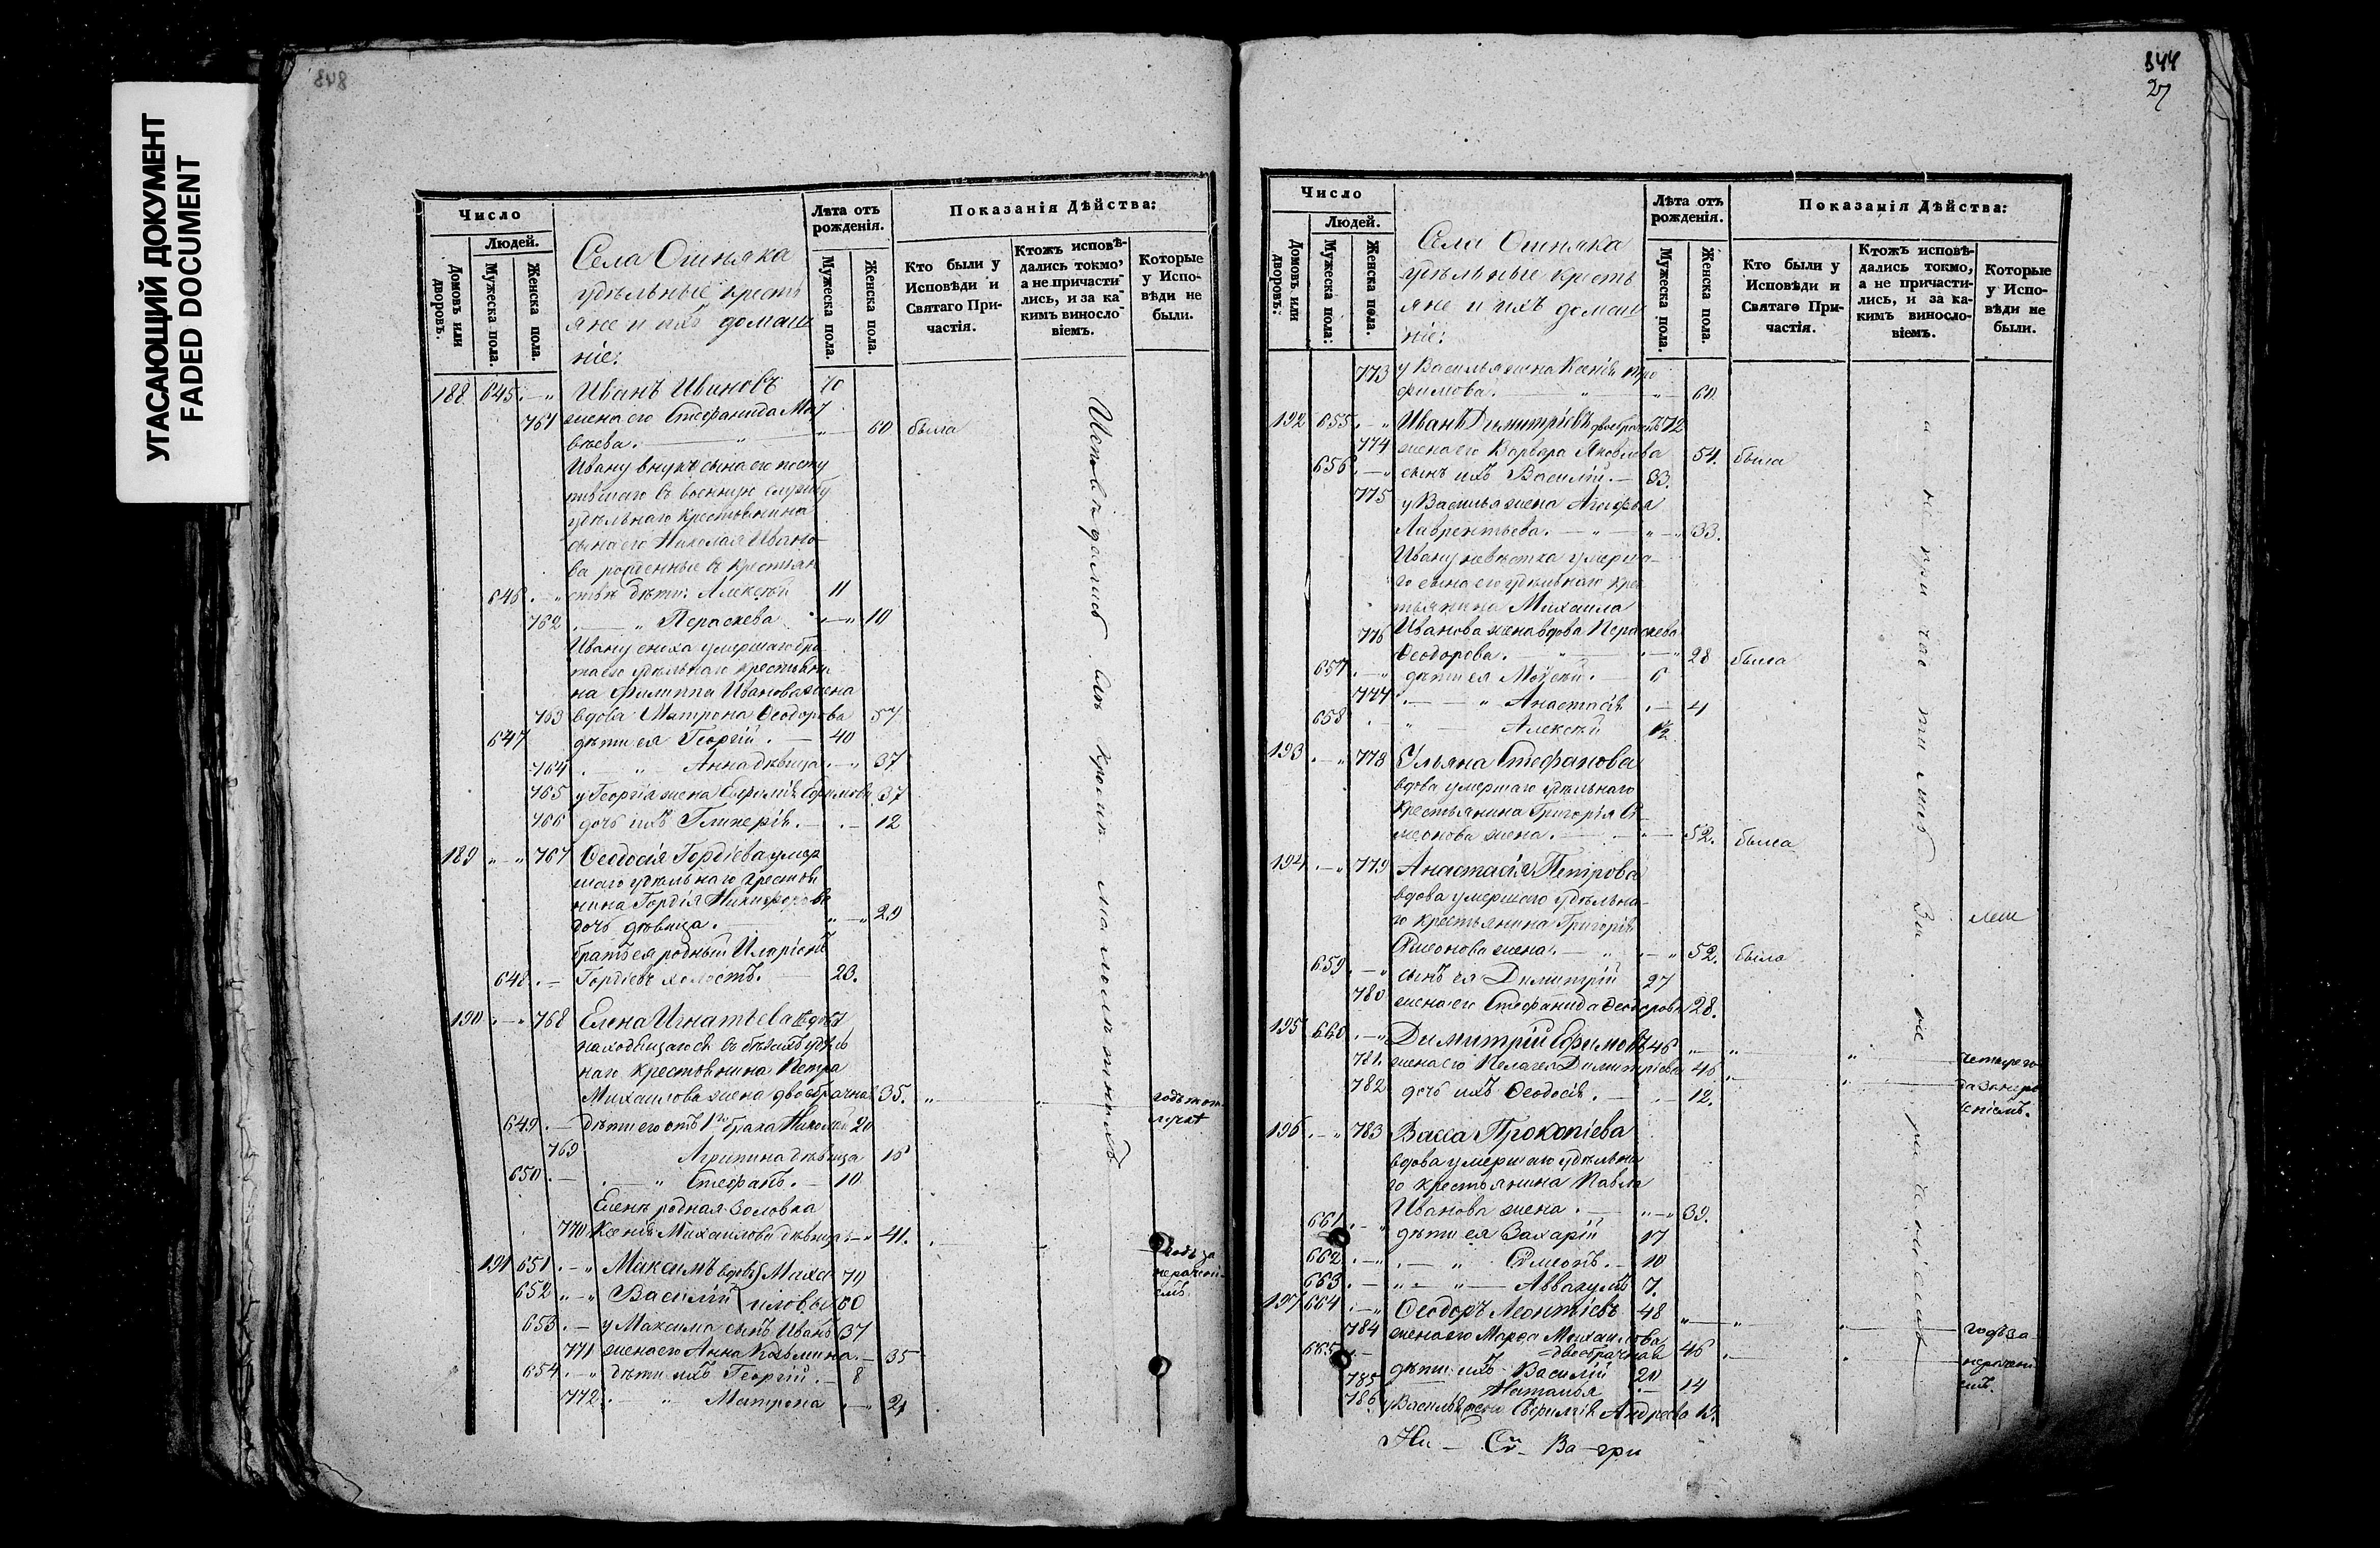 УГАСАЮЩИЙ ДОКУМЕНТ
FADED DOCUMENT
848
Число
Людей.
Домовъ или дворовъ.
Мужеска пола.
Женска пола.
Села Ошняка
удѣльные кресть
яне и ихъ домаш
ніе:
Лѣта отъ рожденія.
Мужеска пола.
Женска пола.
Показанія Дѣйства:
Кто были у Исповѣди и Святаго При-частія.
Ктожъ исповѣ-дались токмо, а не причасти-лись, и за ка-кимъ винословіемъ.
Которые у Испо-вѣди не были.
188 645 Иванъ Ивановъ 70
761 жена его Стефанида Мат
вѣева. 60 была
Ивану внуки сына его посту
пившаго въ военную службу
удѣльнаго крестьянина
сына его Николая Ивано-
ва рожденные въ крестьян
646 ствѣ дѣти: Алексѣй 11
762 Параскева 10
Ивану сноха умершаго бра
та его удѣльнаго крестьяни
на Филиппа Иванова жена
763 вдова Матрона Ѳеодорова 57
647 дѣти ея Георгій 40
764 Анна дѣвица 37
765 у Георгія жена Евфимія Ефимова 37
766 дочь ихъ Гликерія. 12
189 767 Ѳеодосія Гордіева умер
шаго удѣльнаго крестья
нина Гордія Никифорова
дочь дѣвица. 29
братъ ея родный Иларіонъ
648 Гордіевъ холостъ. 23.
190 768 Елена Игнатьева
находящагося въ бѣгахъ удѣль
наго крестьянина Петра
Михаилова жена двообрачная 35.
649 дѣти его отъ 1го брака Николай 20
769 Агрипина дѣвица 15
650 Стефанъ. 10
Еленѣ родная золовка
770 Ксенія Михаилова дѣвица 41.
191 651 Максимъ вдовъ Миха 70
652 Василій иловы 60
653 у Максима сынъ Иванъ 37
771 жена его Анна Козьмина 35
654 дѣти ихъ Георгій. 8
772 Матрона 2
Исповѣдались всѣ кромѣ малолѣтнихъ
годъ за
нерачені
емъ.
844
27
Число
Людей.
Домовъ или дворовъ:
Мужеска пола:
Женска пола.
Села Ошняка
удѣльные кресть
яне и ихъ домаш
ніе:
Лѣта отъ рожденія.
Мужеска пола.
Женска пола.
Показанія Дѣйства:
Кто были у Исповѣди и Святаго При-частія.
Ктожъ исповѣ-дались токмо, а не причасти-лись, и за ка-кимъ винословіемъ.
Которые у Испо-вѣди не были.
773 у Василья жена Ксенія Тро
фимова. 60
192 655 Иванъ Димитріевъ двоебрачный 72
774 жена его Варвара Яковлева 54. была
656 сынъ ихъ Василій. 33.
775 у Василья жена Агафья
Лаврентьева. 33.
Ивану невѣстка умерша-
го сына его удѣльнаго крес
тьянина Михаила
776 Иванова жена вдова Параскева
Ѳеодорова. 28 была
657 дѣти ея Моѵсей. 6
777 Анастасія 4
658 Алексѣй 1/2
193 778 Ульяна Стефанова
вдова умершаго удѣльнаго
крестьянина Григорія Си
меонова жена. 52. была
194 779 Анастасія Петрова
вдова умершаго удѣльна-
го крестьянина Григорія
Симеонова жена. 52. была
659 сынъ ея Димитрій 27
780 жена его Стефанида Ѳеодорова 28.
195 660 Димитрій Ефимовъ 46
781. жена его Пелагея Димитріева 46
782 дочь ихъ Ѳеодосія. 12.
196 783 Васса Прокопіева
вдова умершаго удѣльна
го крестьянина Павла
Иванова жена. 39.
661 дѣти ея Захарій 17
662 Симеонъ. 10
663 Аввакумъ 7.
197 664 Ѳеодоръ Леонтіевъ 48
784 жена его Марѳа Михаилова
двоебрачная 46
665 дѣти ихъ Василій 20
785 Наталья 14
786 у Василья жена Евфимія Андреева
и не причастились За не раченіемъ
четыре го
да за нера
ченіемъ.
годъ за
нерачені
емъ.